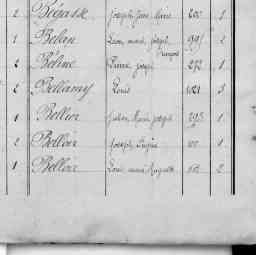 2 Bégasse Joseph Jean Marie 200 1
1 Belan Jean Marie Joseph François 1
2 Béline Pierre Joseph 272 1
2 Bellamy Louis 1021 3
1 Bellier Julien Marie Joseph 293 1
2 Bellois Joseph Eugène 1
1 Bellois Louis Marie Auguste 2